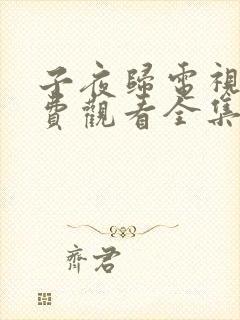 子夜歸電視
費觀看全集
齊君